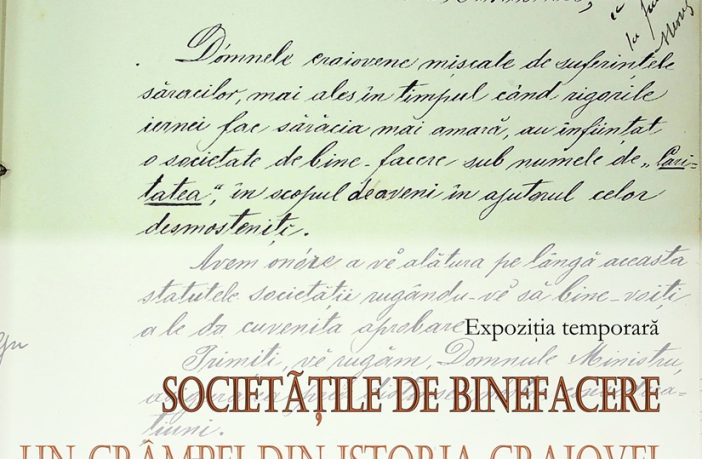 Dómnele craiovene mișcate de suferințele
săracilor, mai ales în timpul când rigorile
iernei fac sărăcia mai amară, au înființat
o societate de bine-facere sub numele de „Cari-
tatea", în scopul de a veni în ajutorul celor
desmosteniți.
Avem onóre a vĕ alătura pe lângă aceasta
statutele societății rugându-vĕ sa bine-voiți
a le da cuvenita aprobare
Expoziția temporară
Primiți, vĕ rugăm, Domnule Ministru,
SOCIETĂȚILE DE BINEFACERE
țiuni.
UN CRÂMPEI DIN ISTORIA CRAIOVEI